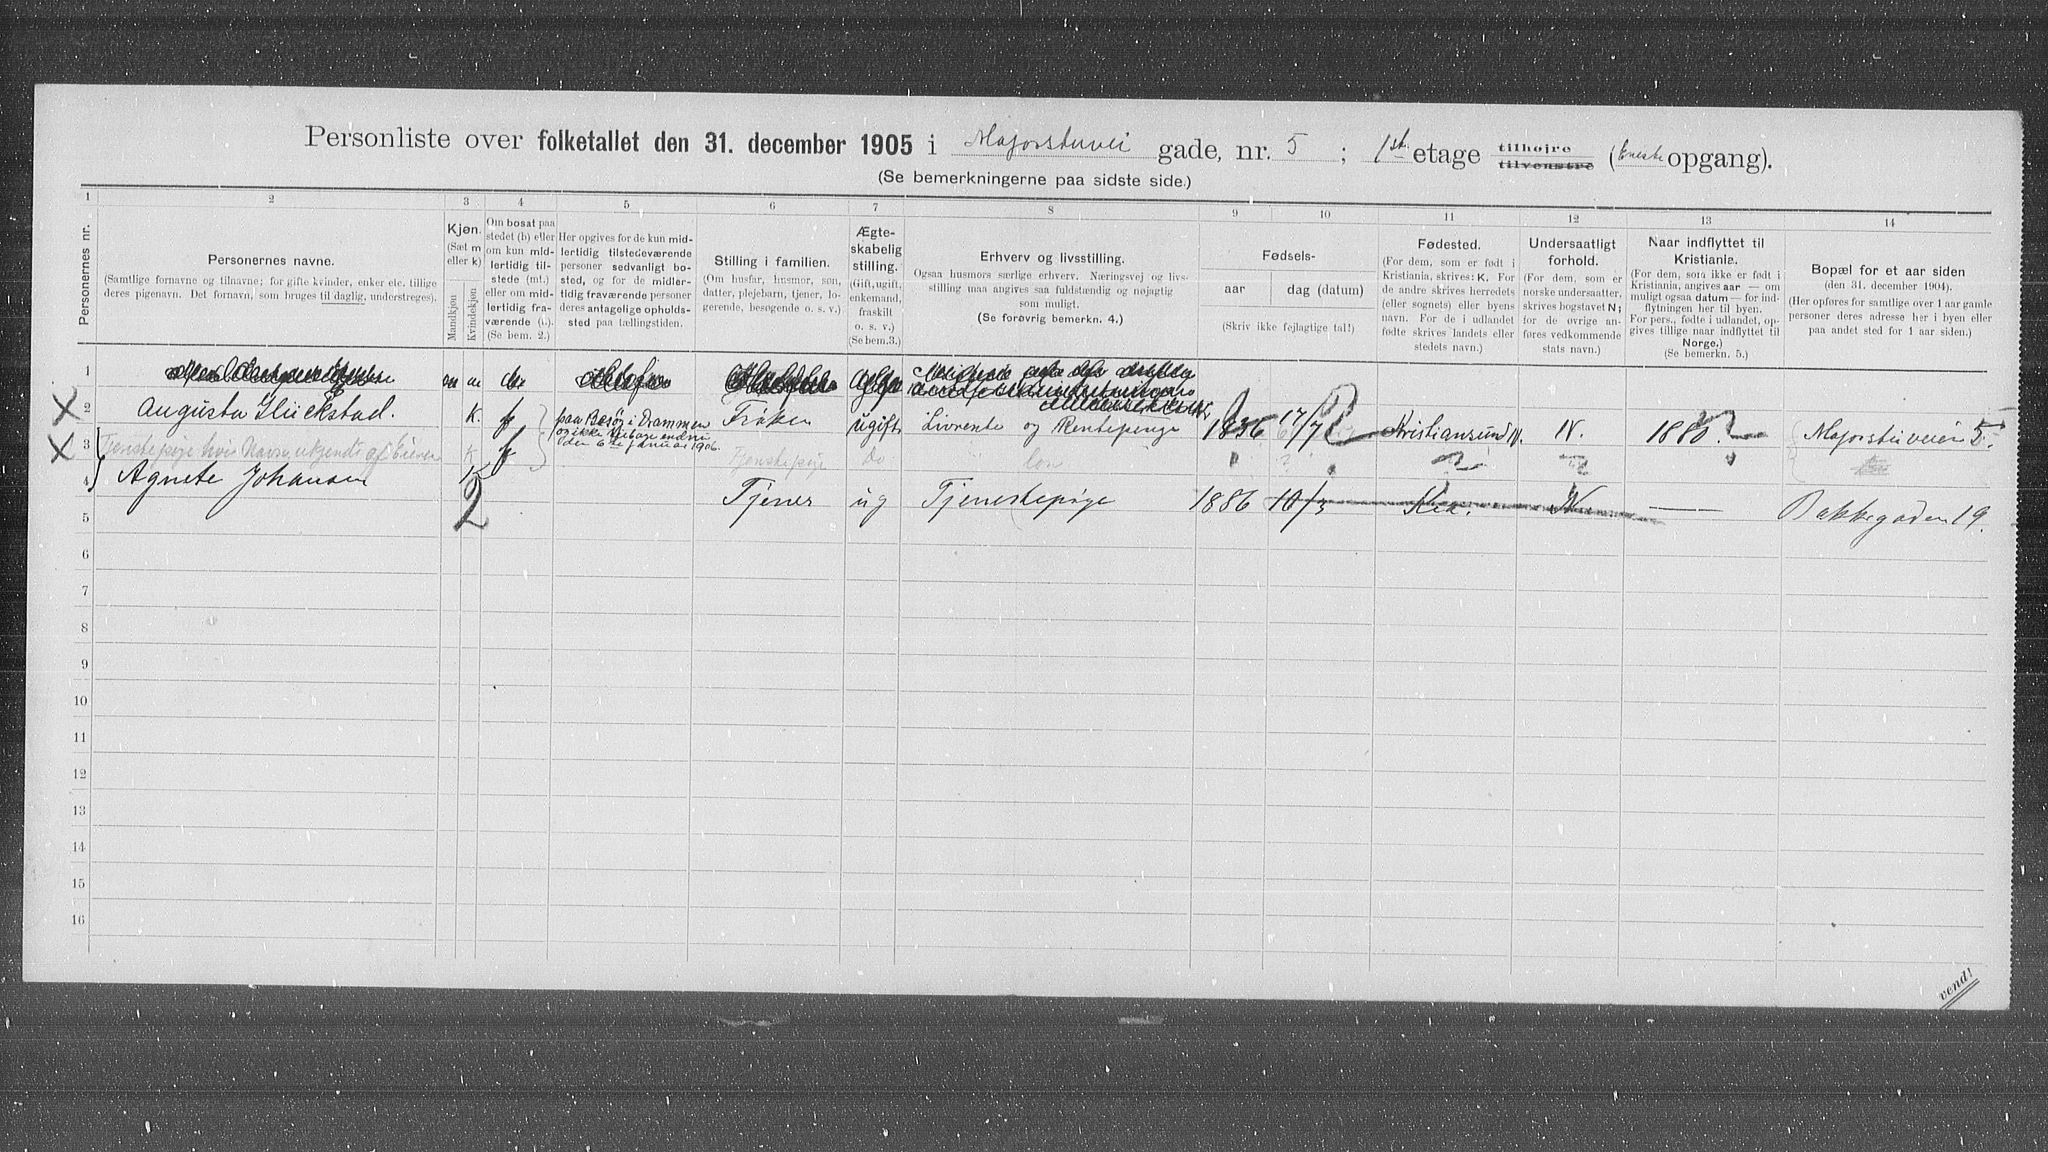 Personliste over folketallet den 31. december 1905 i Majorstuvei gade, nr. 5 ; 1st etage tilhøjre tilvenstre (Eneste opgang).
(Se bemerkningerne paa sidste side.)
1 2 3 4 5 6 7 8 9 10 11 12 13 14
Personernes nr.
Personernes navne.
(Samtlige fornavne og tilnavne; for gifte kvinder, enker etc. tillige
deres pigenavn. Det fornavn, som bruges til daglig, understreges).
Kjøn.
(Sæt m
eller k)
Mandkjøn
Kvindekjøn
Om bosat paa
stedet (b) eller
om kun mid-
lertidig til-
stede (mt.)
eller om mid-
lertidig fra-
værende (f.).
(Se bem. 2.)
Her opgives for de kun mid-
lertidig tilstedeværende
personer sedvanligt bo-
sted, og for de midler-
tidig fraværende personer
deres antagelige opholds-
sted paa tællingstiden.
Stilling i familien.
(Om husfar, husmor, søn,
datter, plejebarn, tjener, lo-
gerende, besøgende o. s. v.)
Ægte-
skabelig
stilling.
(Gift, ugift,
enkemand,
fraskilt
o. s. v.)
(Se bem.3.)
Erhverv og livsstilling.
Ogsaa husmors særlige erhverv. Næringsvej og livs-
stilling maa angives saa fuldstændig og nøjagtig
som muligt.
(Se forøvrig bemerkn. 4.)
Fødsels-
aar
dag (datum)
(Skriv ikke fejlagtige tal!)
Fødested.
(For dem, som er født i
Kristiania, skrives: K. For
de andre skrives herredets
(eller sognets) eller byens
navn. For de i udlandet
fødte skrives landets eller
stedets navn.)
Undersaatligt
forhold.
(For dem, som er
norske undersaatter,
skrives bogstavet N;
for de øvrige an-
føres vedkommende
stats navn.)
Naar indflyttet til
Kristiania.
(For dem, som ikke er født i
Kristiania, angives aar — om
muligt ogsaa datum — for ind-
flytningen her til byen.
For pers., fødte i udlandet, op-
gives tillige naar indflyttet til
Norge.)
(Se bemerkn. 5.)
Bopæl for et aar siden
(den 31. december 1904).
(Her opføres for samtlige over 1 aar gamle
personer deres adresse her i byen eller
paa andet sted for 1 aar siden.)
1
X 2 Augusta Glückstad. K. f paa Besøg i Drammen Frøken ugift Livrente og Rentepenge 1836 17/7 Kristiansund N. N. 1880 ? Majorstuveien 5.
og ikke tilbage endnu
den 6te Januar 1906.
X 3 Tjenestepige hvis Navn ukjendt af Eieren K f Tjenestepige Do
4 Agnete Johansen K
2 Tjener ug Tjenestepige 1886 10/3 Kra. N — Bakkegaden 19.
5
6
7
8
9
10
11
12
13
14
15
16
vend!